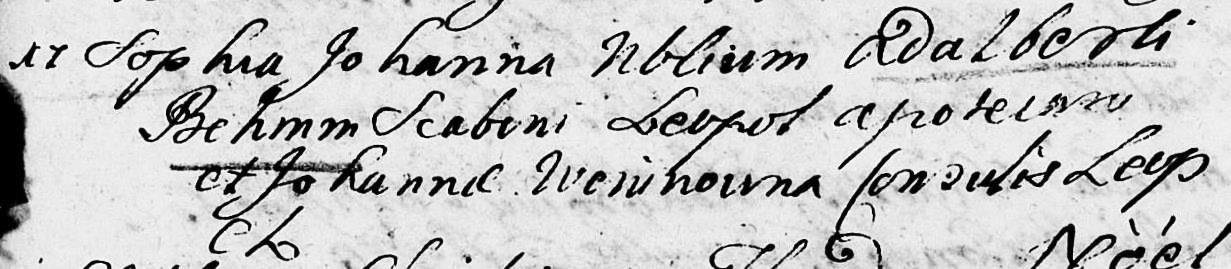 17 Sophia Johanna Nblium Adalberti
Behmm Scabini Leopol apotecarii
et Johannæ Consulis Leop
CL
Nòél